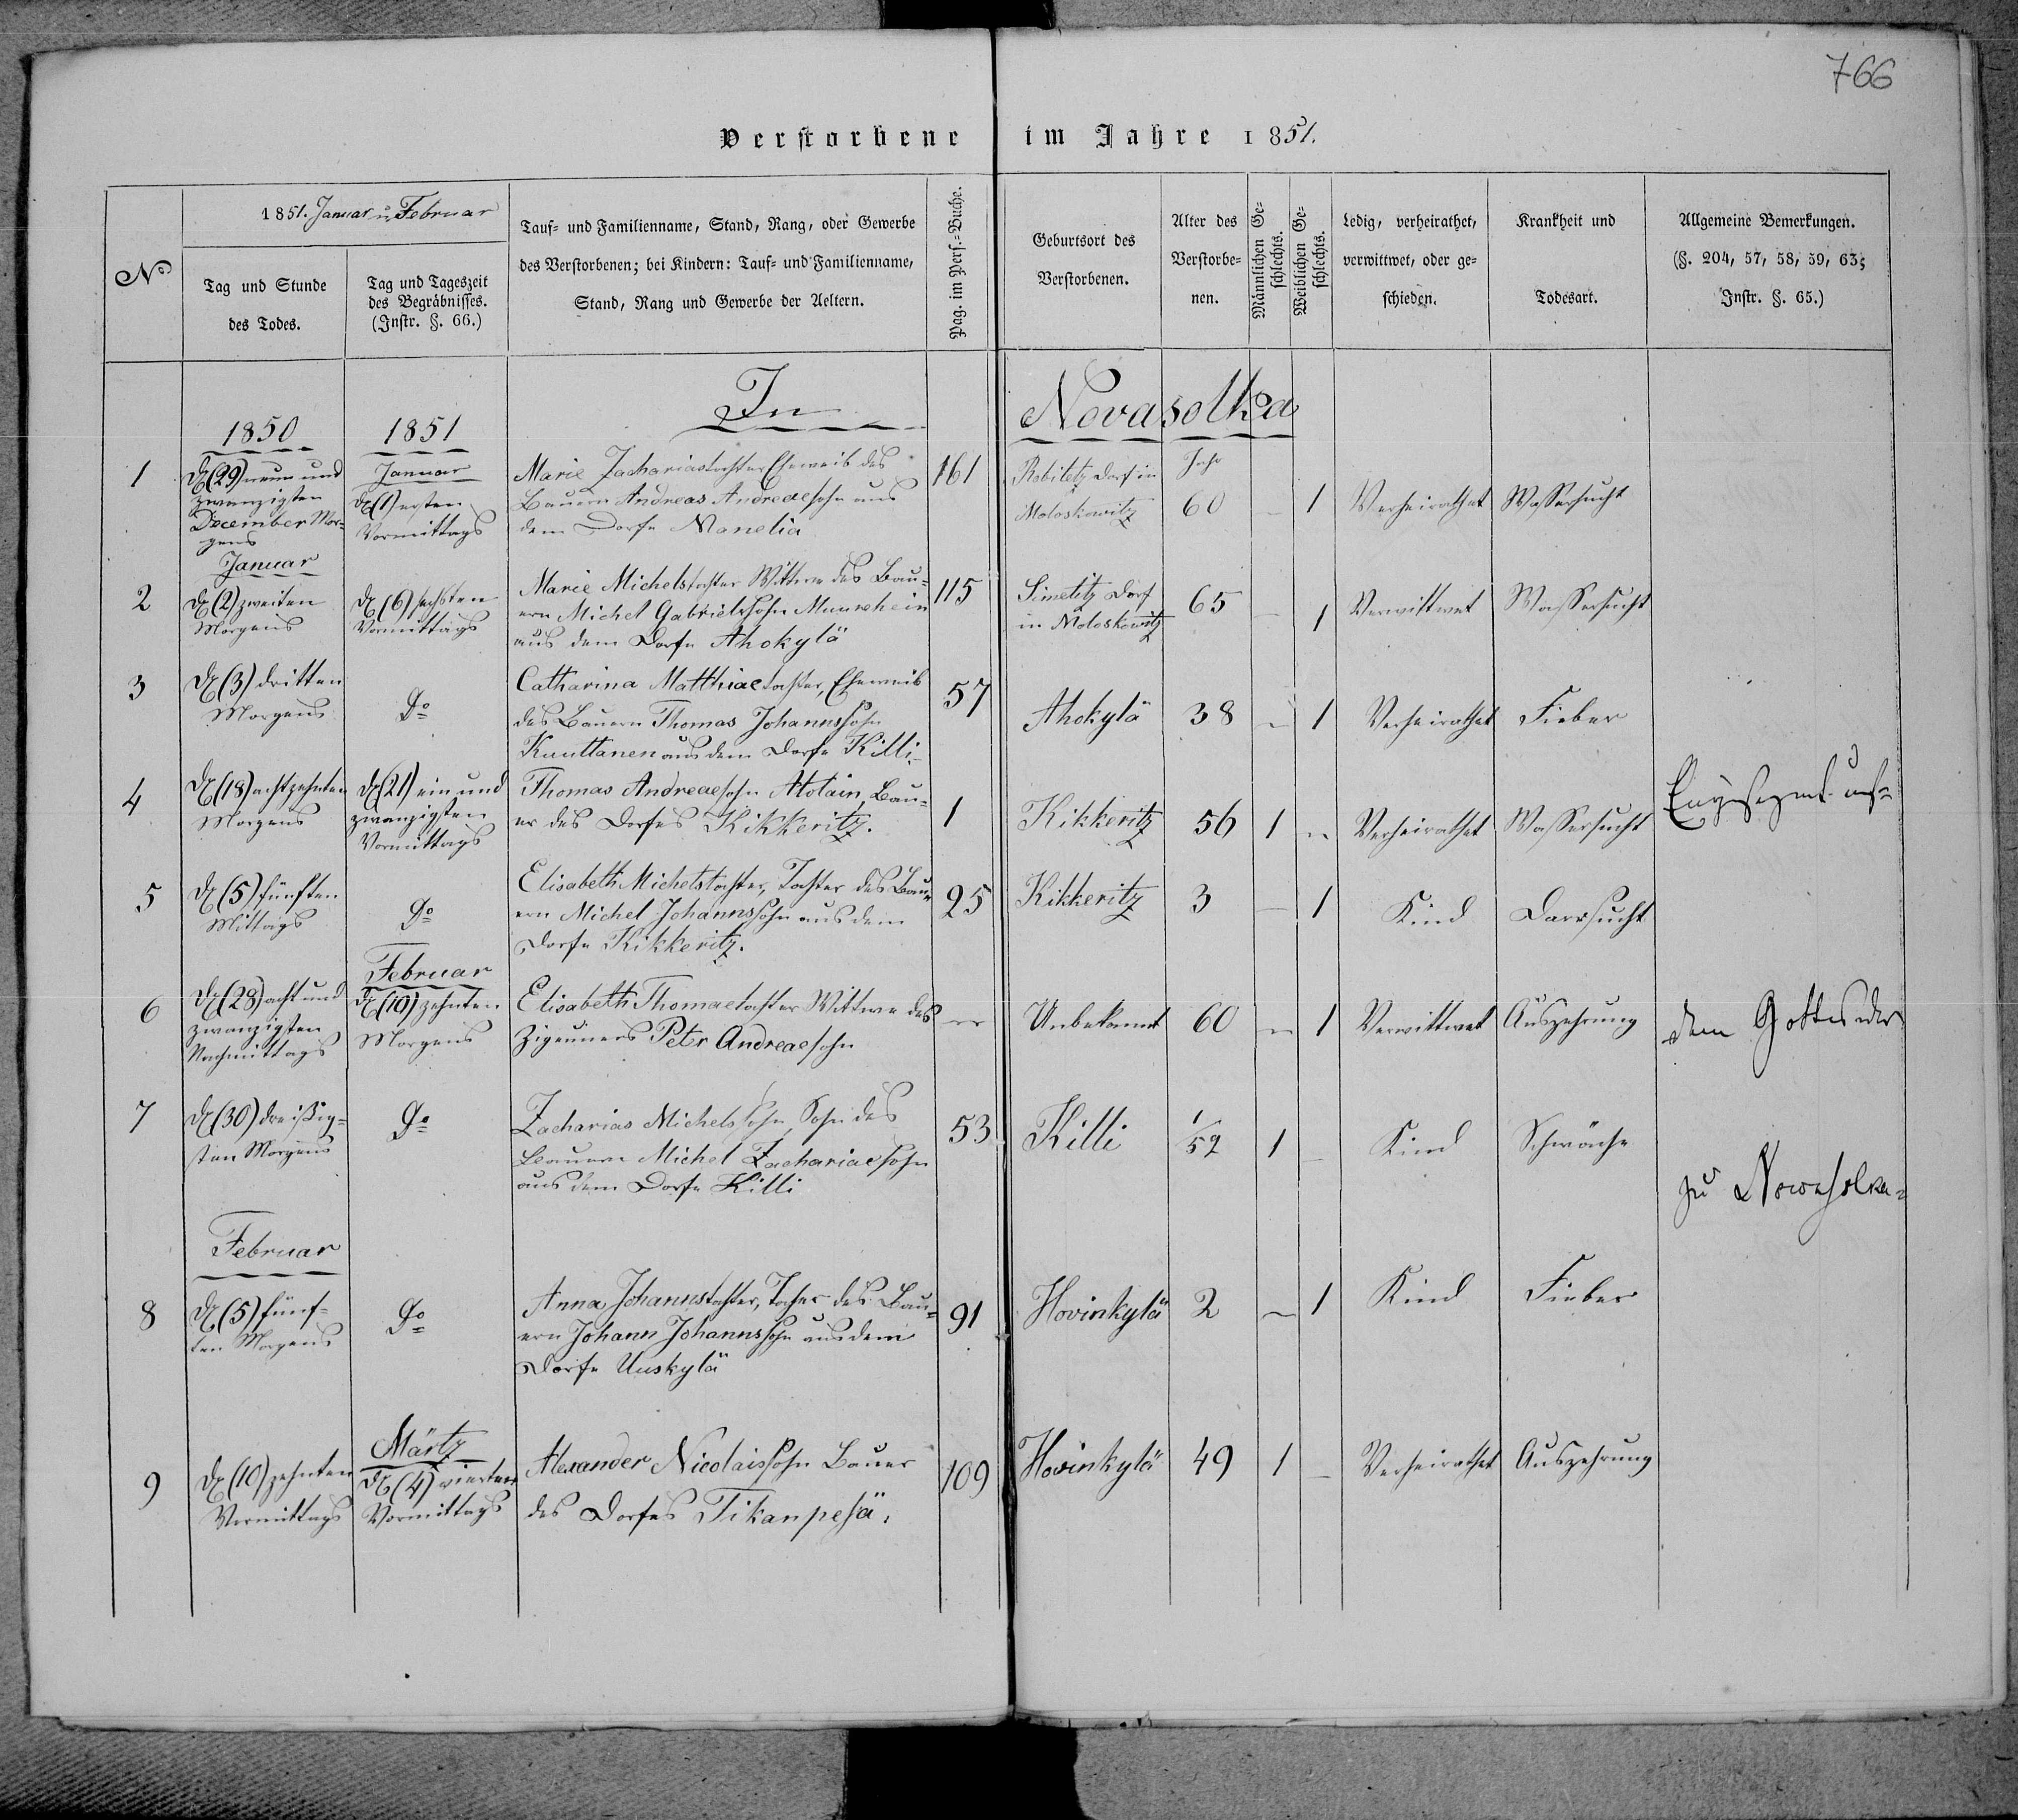 766
Verstorbene im Jahre 1851.
No
1851. Januar u. Februar
Tag und Stunde
des Todes.
Tag und Tageszeit
des Begräbnisses.
(Instr. §. 66.)
Tauf- und Familienname, Stand, Rang, oder Gewerbe
des Verstorbenen; bei Kindern: Tauf- und Familienname,
Stand, Rang und Gewerbe der Aeltern.
Pag. im Pers.-Buche.
Geburtsort des
Verstorbenen.
Alter des
Verstorbe-
nen.
Männlichen Ge-
schlechts.
Weiblichen Ge-
schlechts.
Ledig, verheirathet,
verwittwet, oder ge-
schieden.
Krankheit und
Todesart.
Allgemeine Bemerkungen.
(§. 204, 57, 58, 59, 63;
Instr. §. 65.)
In Novasolka
1
1850
(29) neun und
zwanzigsten
December Mor-
gens
1851
Januar
(1) ersten
Vormittags
Marie Zachariastochter Eheweib des
Bauern Andreas Andreaesohn aus
dem Dorfe Manelia
161
Robiletz Dorf in
Moloskowitz
Jahr
60
–
1
Verheirathet
Wassersucht
2
Januar
(2) zweiten
Morgens
(6) sechsten
Vormittags
Marie Michelstochter Wittwe des Bau-
ern Michel Gabrielssohn Muurehein
aus dem Dorfe Ahokylä
115
Simelitz Dorf
in Moloskowitz
65
–
1
Verwittwet
Wassersucht
3
(3) dritten
Morgens
do
Catharina Matthiaetochter, Eheweib
des Bauern Thomas Johannssohn
Kuuttanen aus dem Dorfe Killi
57
Ahokylä
38
–
1
Verheirathet
Fieber
4
(18) achtzehnten
Morgens
(21) ein und
zwanzigsten
Vormittags
Thomas Andreaesohn Atolain, Bau-
er des Dorfes Kikkeritz.
1
Kikkeritz
56
1
–
Verheirathet
Wassersucht
5
(5) fünften
Mittags
do
Elisabeth Michelstochter, Tochter des Bau-
ern Michel Johannssohn aus dem
Dorfe Kikkeritz.
95
Kikkeritz
3
–
1
Kind
Darrsucht
6
(28) acht und
zwanzigsten
Nachmittags
Februar
(10) zehnten
Morgens
Elisabeth Thomaetochter Wittwe des
Zigeuners Peter Andreaesohn
–
Unbekannt
60
–
1
Verwittwet
Auszehrung
dem Gottesacker
7
(30) dreißig-
sten Morgens
do
Zacharias Michelssohn, Sohn des
Bauern Michel Zachariaesohn
aus dem Dorfe Killi
53
Killi
1/52
1
–
Kind
Schwäche
zu Nowasolka
Februar
8
(5) fünf-
ten Morgens
do
Anna Johannstochter, Tochter des Bau-
ern Johann Johannssohn aus dem
Dorfe Uuskylä
91
Hovinkylä
2
–
1
Kind
Fieber
9
(10) zehnten
Vormittags
Märtz
(4) vierten
Vormittags
Alexander Nicolaissohn Bauer
des Dorfes Tikanpesä.
109
Hovinkylä
49
1
–
Verheirathet
Auszehrung